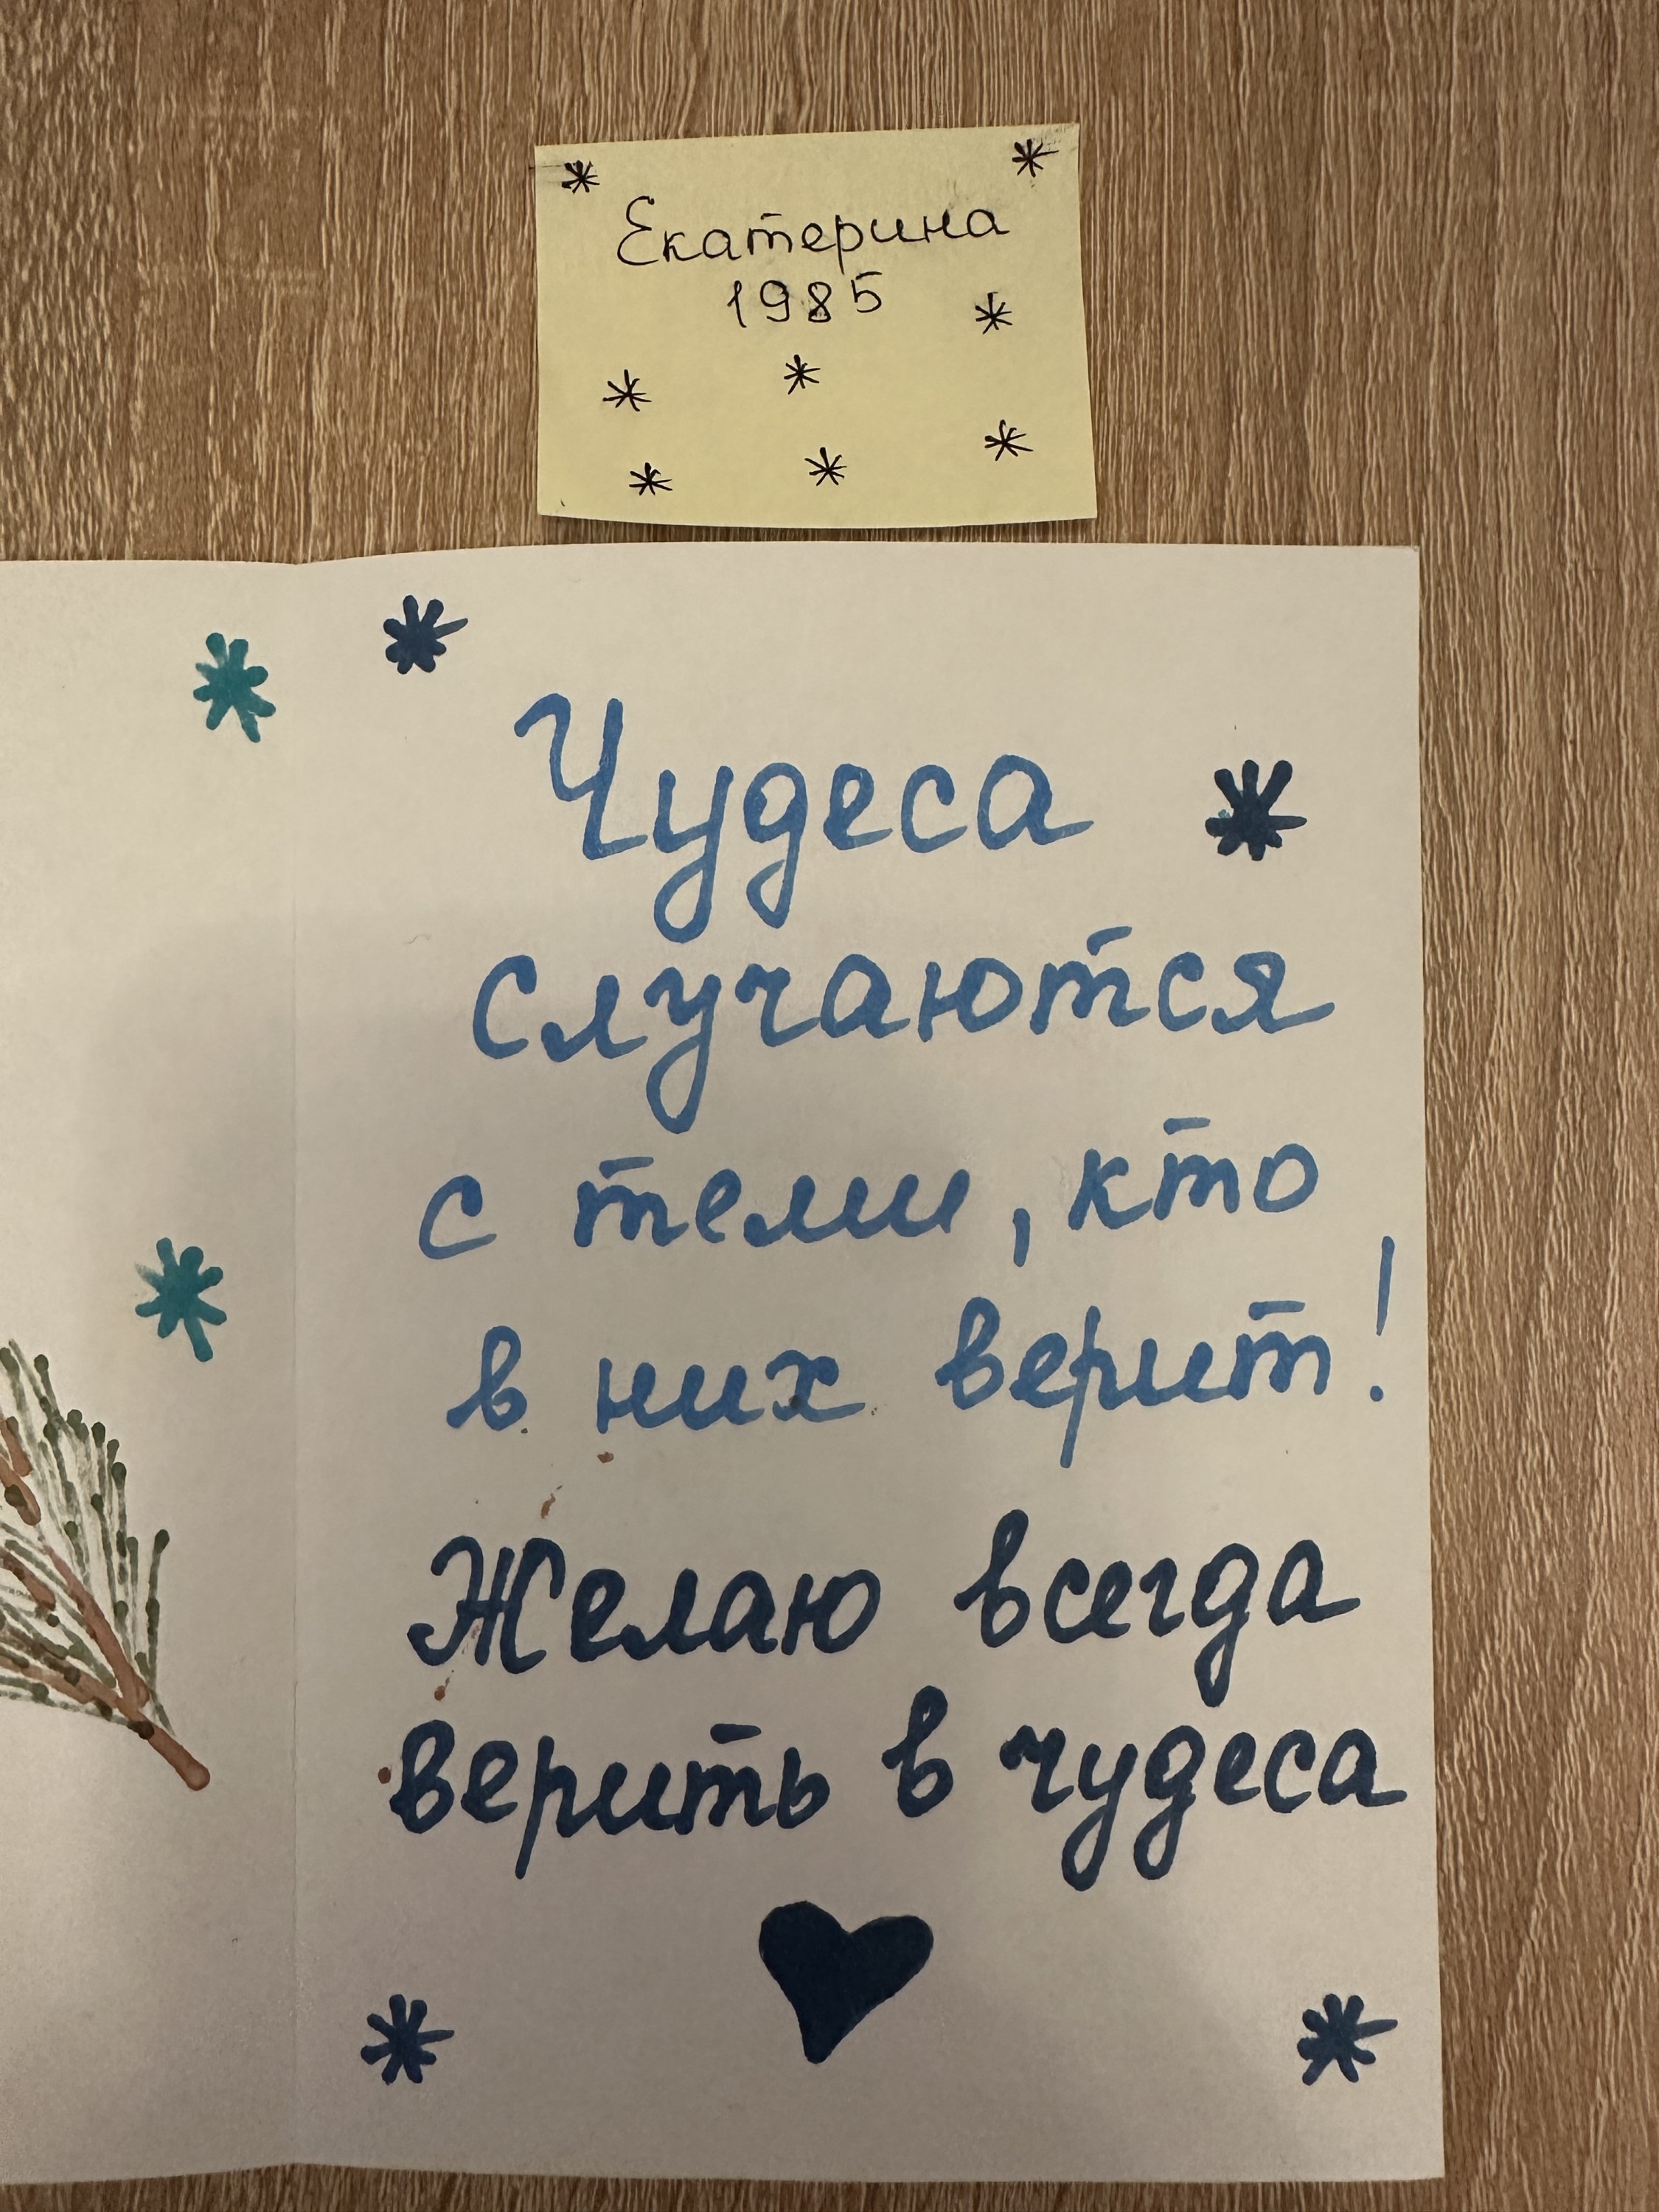 Екатерина
1985
Чудеса
случаются
с теми, кто
в них верит!
Желаю всегда
верить в чудеса